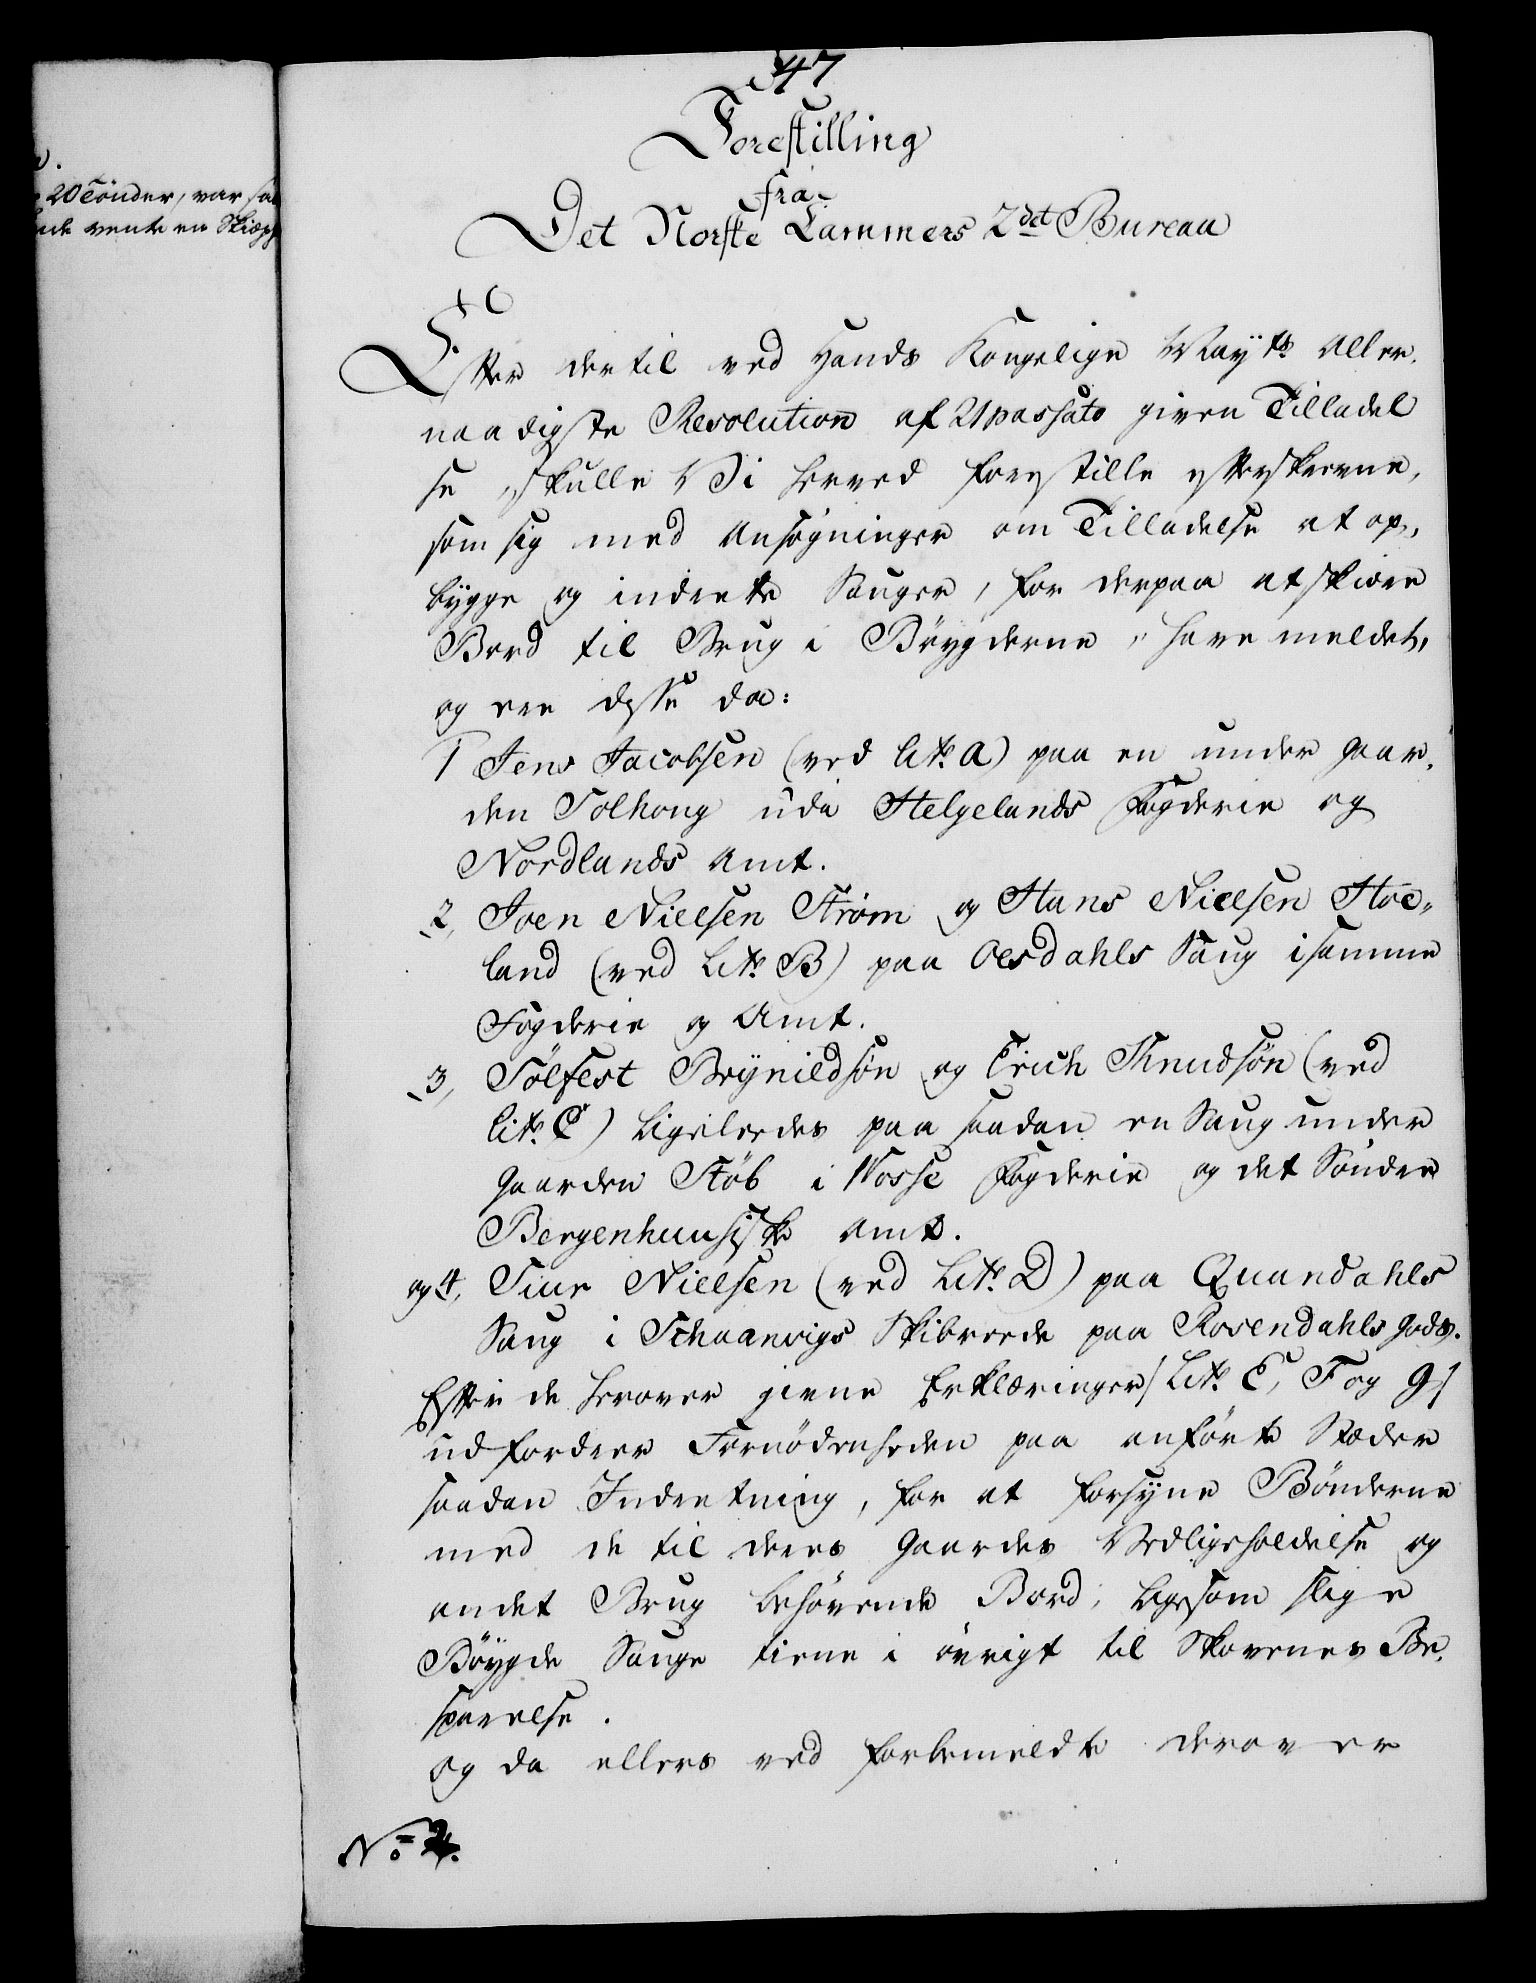 47
Forestilling
fra
Det Norske Cammers 2det Bureau
20 Tönder, var saa
vente en Skiæp
Efter dertil ved Hands Kongelige Mayts Aller-
naadigste Resolution af 21 passato given Tilladel
se, skulle Vi herved forestille efterskrevne,
som sig med Ansøgninger om Tilladelse at op-
bygge og indrette Sauger, for derpaa at skiære
Bord til Brug i Böygderne, have meldet,
og ere disse da:
1 Jens Jacobsen (ved Litr. A) paa en under Gaar-
den Solhoug udi Helgelands Fogderie og
Nordlands Amt.
2, Joen Nielsen Ström og Hans Nielsen Hoe-
land (ved Litr. B) paa Oesdahls Saug i samme
Fogderie og Amt.
3, Sölfest Brynildsön og Erich Knudsøn (ved
Litr. C) ligeledes paa saadan en Saug under
Gaarden Støb i Vosse Fogderie og det Søndre
Bergenhuusiske Amt.
og 4, Siur Nielsen (ved Litr. D) paa Quandahls
Saug i Schaanvigs Skibrede paa Rosendahls Gods.
Efter de herover givne Erklæringer / Litr. E, F og G /
udfordrer Fornödenheden paa anførte Stæder
saadan Indretning, for at forsyne Bönderne
med de til deres Gaardes Vedligeholdelse og
andet Brug behövende Bord, ligesom slige
Böygde Sauge tiene i övrigt til Skovenes Be-
sparelse.
og da ellers ved forbemeldte derover
No 2.